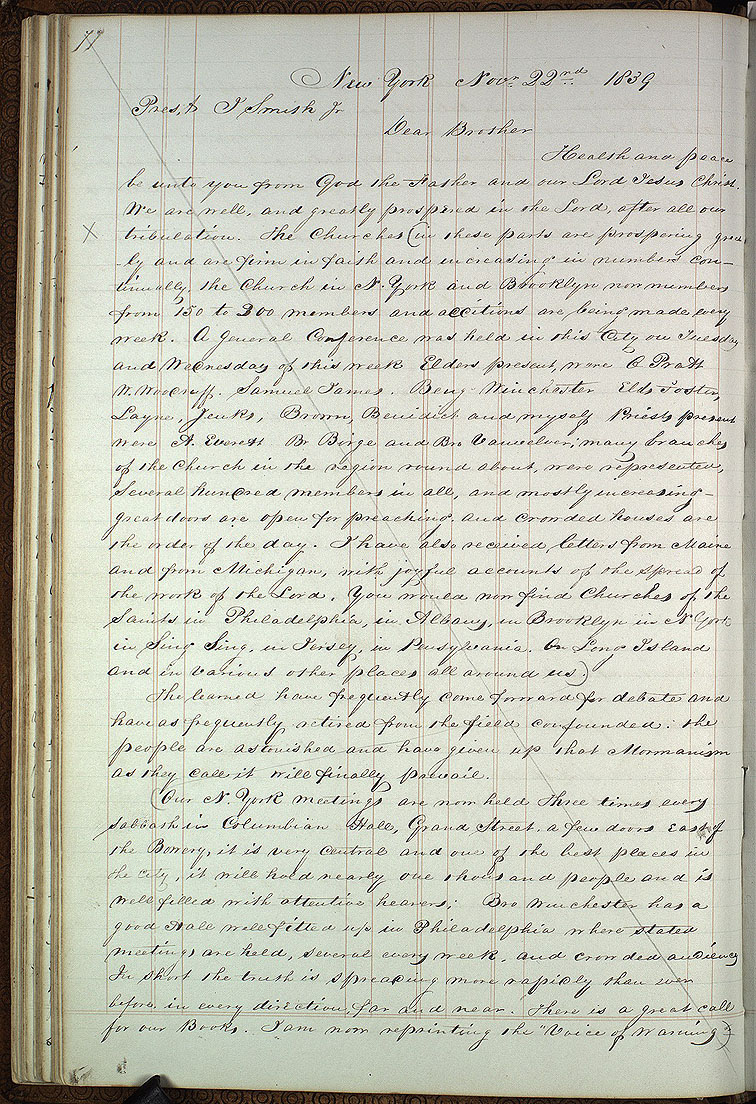 77
New York Novr. 22nd 1839
Prest. J Smith Jr
Dear Brother
Health and peace
be unto you from God the Father and our Lord Jesus Christ.
We are well, and greatly prospered in the Lord, after all our
X
tribulation. The Churches (in these parts are prospering great
-ly and are firm in faith and increasing in numbers con-
tinually, the Church in N. York and Brooklyn now members
from 150 to 200 members and additions are being made every
week. A general Conference was held in this City on Tuesday
and Wednesday of this week Elders present, were O Pratt
W. Woodruff. Samuel James. Benj. Winchester Elds Foster,
Layne, Jenks, Brown, Benidict and myself Priests present
were A. Everett Br Birge and Bro Vanvelver; many branches
of the Church in the region round about, were represented,
several hundred members in all, and mostly increasing-
great doors are open for preaching. and crowded houses are
the order of the day. I have also received letters from Maine
and from Michigan, with joyful accounts of the spread of
the work of the Lord. You would now find Churches of the
Saints in Philadelphia, in Albany, in Brooklyn in N York
in Sing Sing, in Jersey, in Pensylvania. On Long Island
and in various other places all around us).
The learned have frequently come forward for debate and
have as frequently, retired from the field confounded: the
people are astonished and have given up that Mormanism
as they call it will finally prevail.
(Our N. York meetings are now held three times every
sabbath in Columbian Hall, Grand Street, a few doors East of
the Bowery, it is very central and one of the best places in
the city, it will hold nearly one thousand people and is
well filled with attentive hearers; Bro Winchester has a
good Hall well fitted up in Philadelphia where stated
meetings are held, several every week, and crowded audiency
In short the truth is spreading more rapidly than ever
before, in every direction, far and near. There is a great call
for our Books. I am now reprinting the "Voice of Warning)